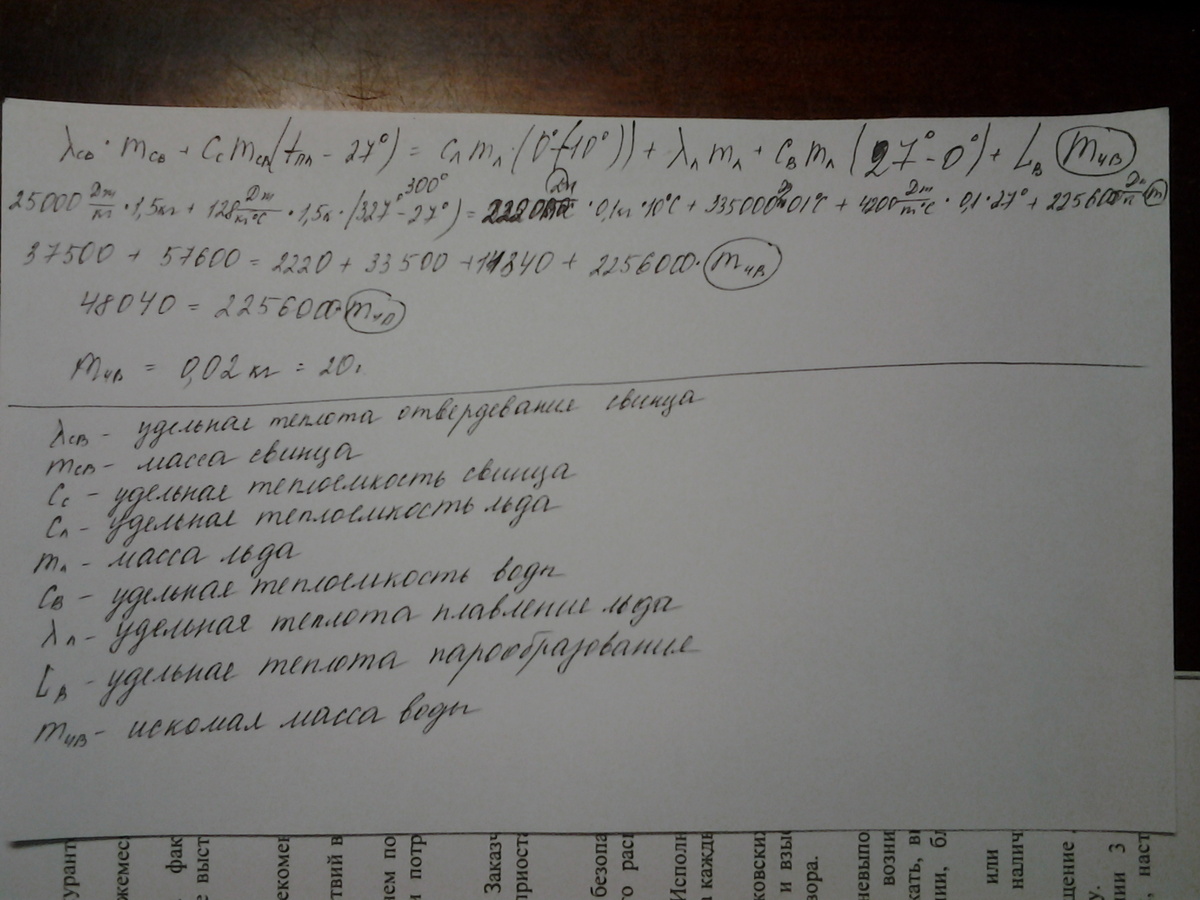 λсв · mсв + Cс mсв (tпл - 27°) = Cл mл · (0°-(-10°)) + λл mл + Cв mл (27° - 0°) + Lв mчв
300°
25000 Дж/кг · 1,5кг + 128 Дж/кг°C · 1,5кг · (327° - 27°) = 2220 · 0,1кг · 10°C + 335000 · 0,1 + 4200 Дж/кг°C · 0,1 · 27° + 2256000 m
37500 + 57600 = 2220 + 33500 + 11340 + 2256000 · mчв
48040 = 2256000 · mчв
mчв = 0,02 кг = 20г
λсв - удельная теплота отвердевание свинца
mсв - масса свинца
Cс - удельная теплоемкость свинца
Cл - удельная теплоемкость льда
mл - масса льда
Cв - удельная теплоемкость воды
λл - удельная теплота плавление льда
Lв - удельная теплота парообразование
mчв - искомая масса воды
уранти
жемес
фак
е выст
екомен
твий в
нем по
и потр
Заказч
приоста
безопа
го рас
Исполн
а кажды
ковских
и взыс
вора.
невыпо
возни
кать, в
нии, бл
или
налич
щение
у.
ии 3
, наст